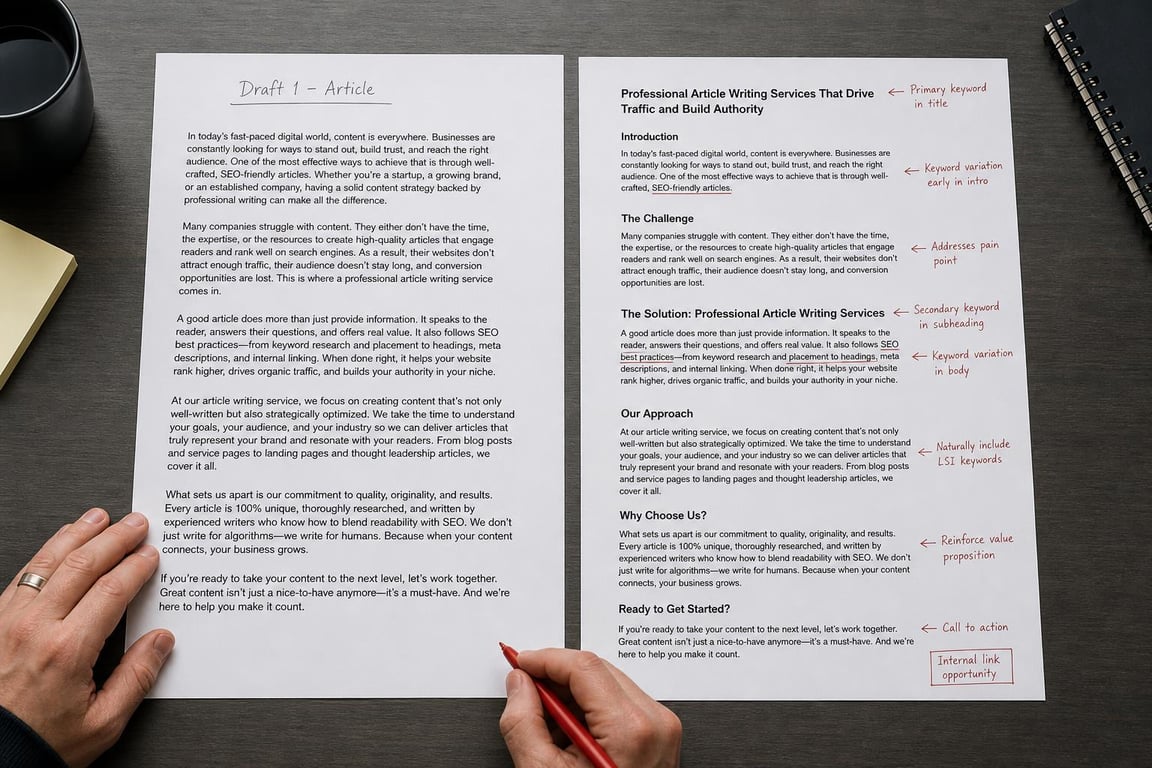 Draft 1 – Article
In today's fast-paced digital world, content is everywhere. Businesses are
constantly looking for ways to stand out, build trust, and reach the right
audience. One of the most effective ways to achieve that is through well-
crafted, SEO-friendly articles. Whether you're a startup, a growing brand,
or an established company, having a solid content strategy backed by
professional writing can make all the difference.
Many companies struggle with content. They either don't have the time,
the expertise, or the resources to create high-quality articles that engage
readers and rank well on search engines. As a result, their websites don't
attract enough traffic, their audience doesn't stay long, and conversion
opportunities are lost. This is where a professional article writing service
comes in.
A good article does more than just provide information. It speaks to the
reader, answers their questions, and offers real value. It also follows SEO
best practices—from keyword research and placement to headings, meta
descriptions, and internal linking. When done right, it helps your website
rank higher, drives organic traffic, and builds your authority in your niche.
At our article writing service, we focus on creating content that's not only
well-written but also strategically optimized. We take the time to understand
your goals, your audience, and your industry so we can deliver articles that
truly represent your brand and resonate with your readers. From blog posts
and service pages to landing pages and thought leadership articles, we
cover it all.
What sets us apart is our commitment to quality, originality, and results.
Every article is 100% unique, thoroughly researched, and written by
experienced writers who know how to blend readability with SEO. We don't
just write for algorithms—we write for humans. Because when your content
connects, your business grows.
If you're ready to take your content to the next level, let's work together.
Great content isn't just a nice-to-have anymore—it's a must-have. And we're
here to help you make it count.
Professional Article Writing Services That Drive
Traffic and Build Authority
← Primary keyword
in title
Introduction
In today's fast-paced digital world, content is everywhere. Businesses are
constantly looking for ways to stand out, build trust, and reach the right
audience. One of the most effective ways to achieve that is through well-
crafted, SEO-friendly articles.
← Keyword variation
early in intro
The Challenge
Many companies struggle with content. They either don't have the time,
the expertise, or the resources to create high-quality articles that engage
readers and rank well on search engines. As a result, their websites don't
attract enough traffic, their audience doesn't stay long, and conversion
opportunities are lost.
← Addresses pain
point
The Solution: Professional Article Writing Services
← Secondary keyword
in subheading
A good article does more than just provide information. It speaks to the
reader, answers their questions, and offers real value. It also follows SEO
best practices—from keyword research and placement to headings, meta
descriptions, and internal linking. When done right, it helps your website
rank higher, drives organic traffic, and builds your authority in your niche.
← Keyword variation
in body
Our Approach
At our article writing service, we focus on creating content that's not only
well-written but also strategically optimized. We take the time to understand
your goals, your audience, and your industry so we can deliver articles that
truly represent your brand and resonate with your readers. From blog posts
and service pages to landing pages and thought leadership articles, we
cover it all.
← Naturally include
LSI keywords
Why Choose Us?
What sets us apart is our commitment to quality, originality, and results.
Every article is 100% unique, thoroughly researched, and written by
experienced writers who know how to blend readability with SEO. We don't
just write for algorithms—we write for humans. Because when your content
connects, your business grows.
← Reinforce value
proposition
Ready to Get Started?
If you're ready to take your content to the next level, let's work together.
Great content isn't just a nice-to-have anymore—it's a must-have. And we're
here to help you make it count.
← Call to action
Internal link
opportunity